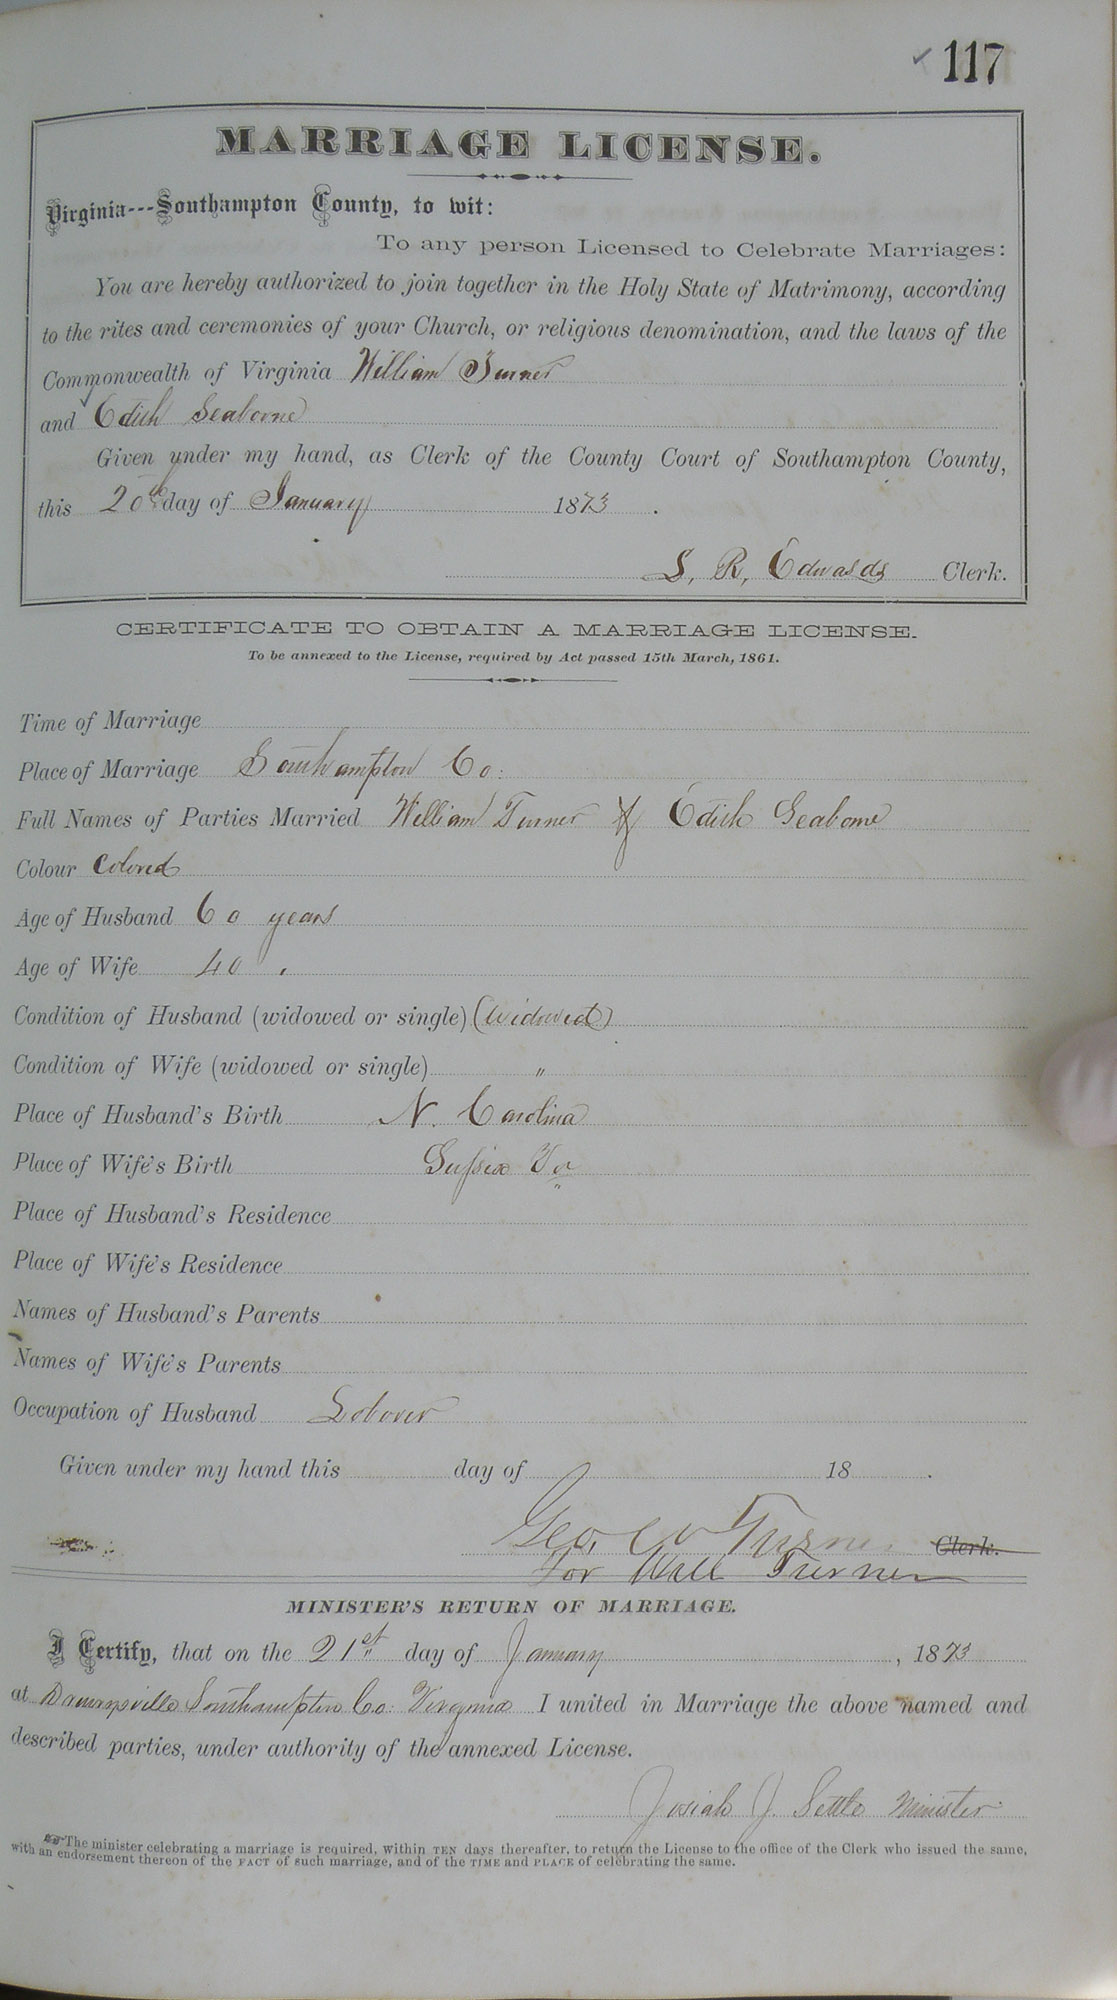 ✓ 117
MARRIAGE LICENSE.
Virginia---Southampton County, to wit:
To any person Licensed to Celebrate Marriages:
You are hereby authorized to join together in the Holy State of Matrimony, according
to the rites and ceremonies of your Church, or religious denomination, and the laws of the
Commonwealth of Virginia William Turner
and Edith Seaborne
Given under my hand, as Clerk of the County Court of Southampton County,
this 20th day of January 1873.
L. R. Edwards Clerk.
CERTIFICATE TO OBTAIN A MARRIAGE LICENSE.
To be annexed to the License, required by Act passed 15th March, 1861.
Time of Marriage
Place of Marriage Southampton Co:
Full Names of Parties Married William Turner & Edith Seaborne
Colour Colored
Age of Husband 60 years
Age of Wife 40 "
Condition of Husband (widowed or single) (Widowed)
Condition of Wife (widowed or single) "
Place of Husband's Birth N. Carolina
Place of Wife's Birth Sussex Va
Place of Husband's Residence
Place of Wife's Residence
Names of Husband's Parents
Names of Wife's Parents
Occupation of Husband Laborer
Given under my hand this day of 18 .
Geo. W Turner Clerk.
For Will Turner
MINISTER'S RETURN OF MARRIAGE.
I Certify, that on the 21st day of January, 1873
at Drewrysville Southampton Co: Virginia I united in Marriage the above named and
described parties, under authority of the annexed License.
Josiah J. Settle Minister
☞The minister celebrating a marriage is required, within TEN days thereafter, to return the License to the office of the Clerk who issued the same,
with an endorsement thereon of the FACT of such marriage, and of the TIME and PLACE of celebrating the same.